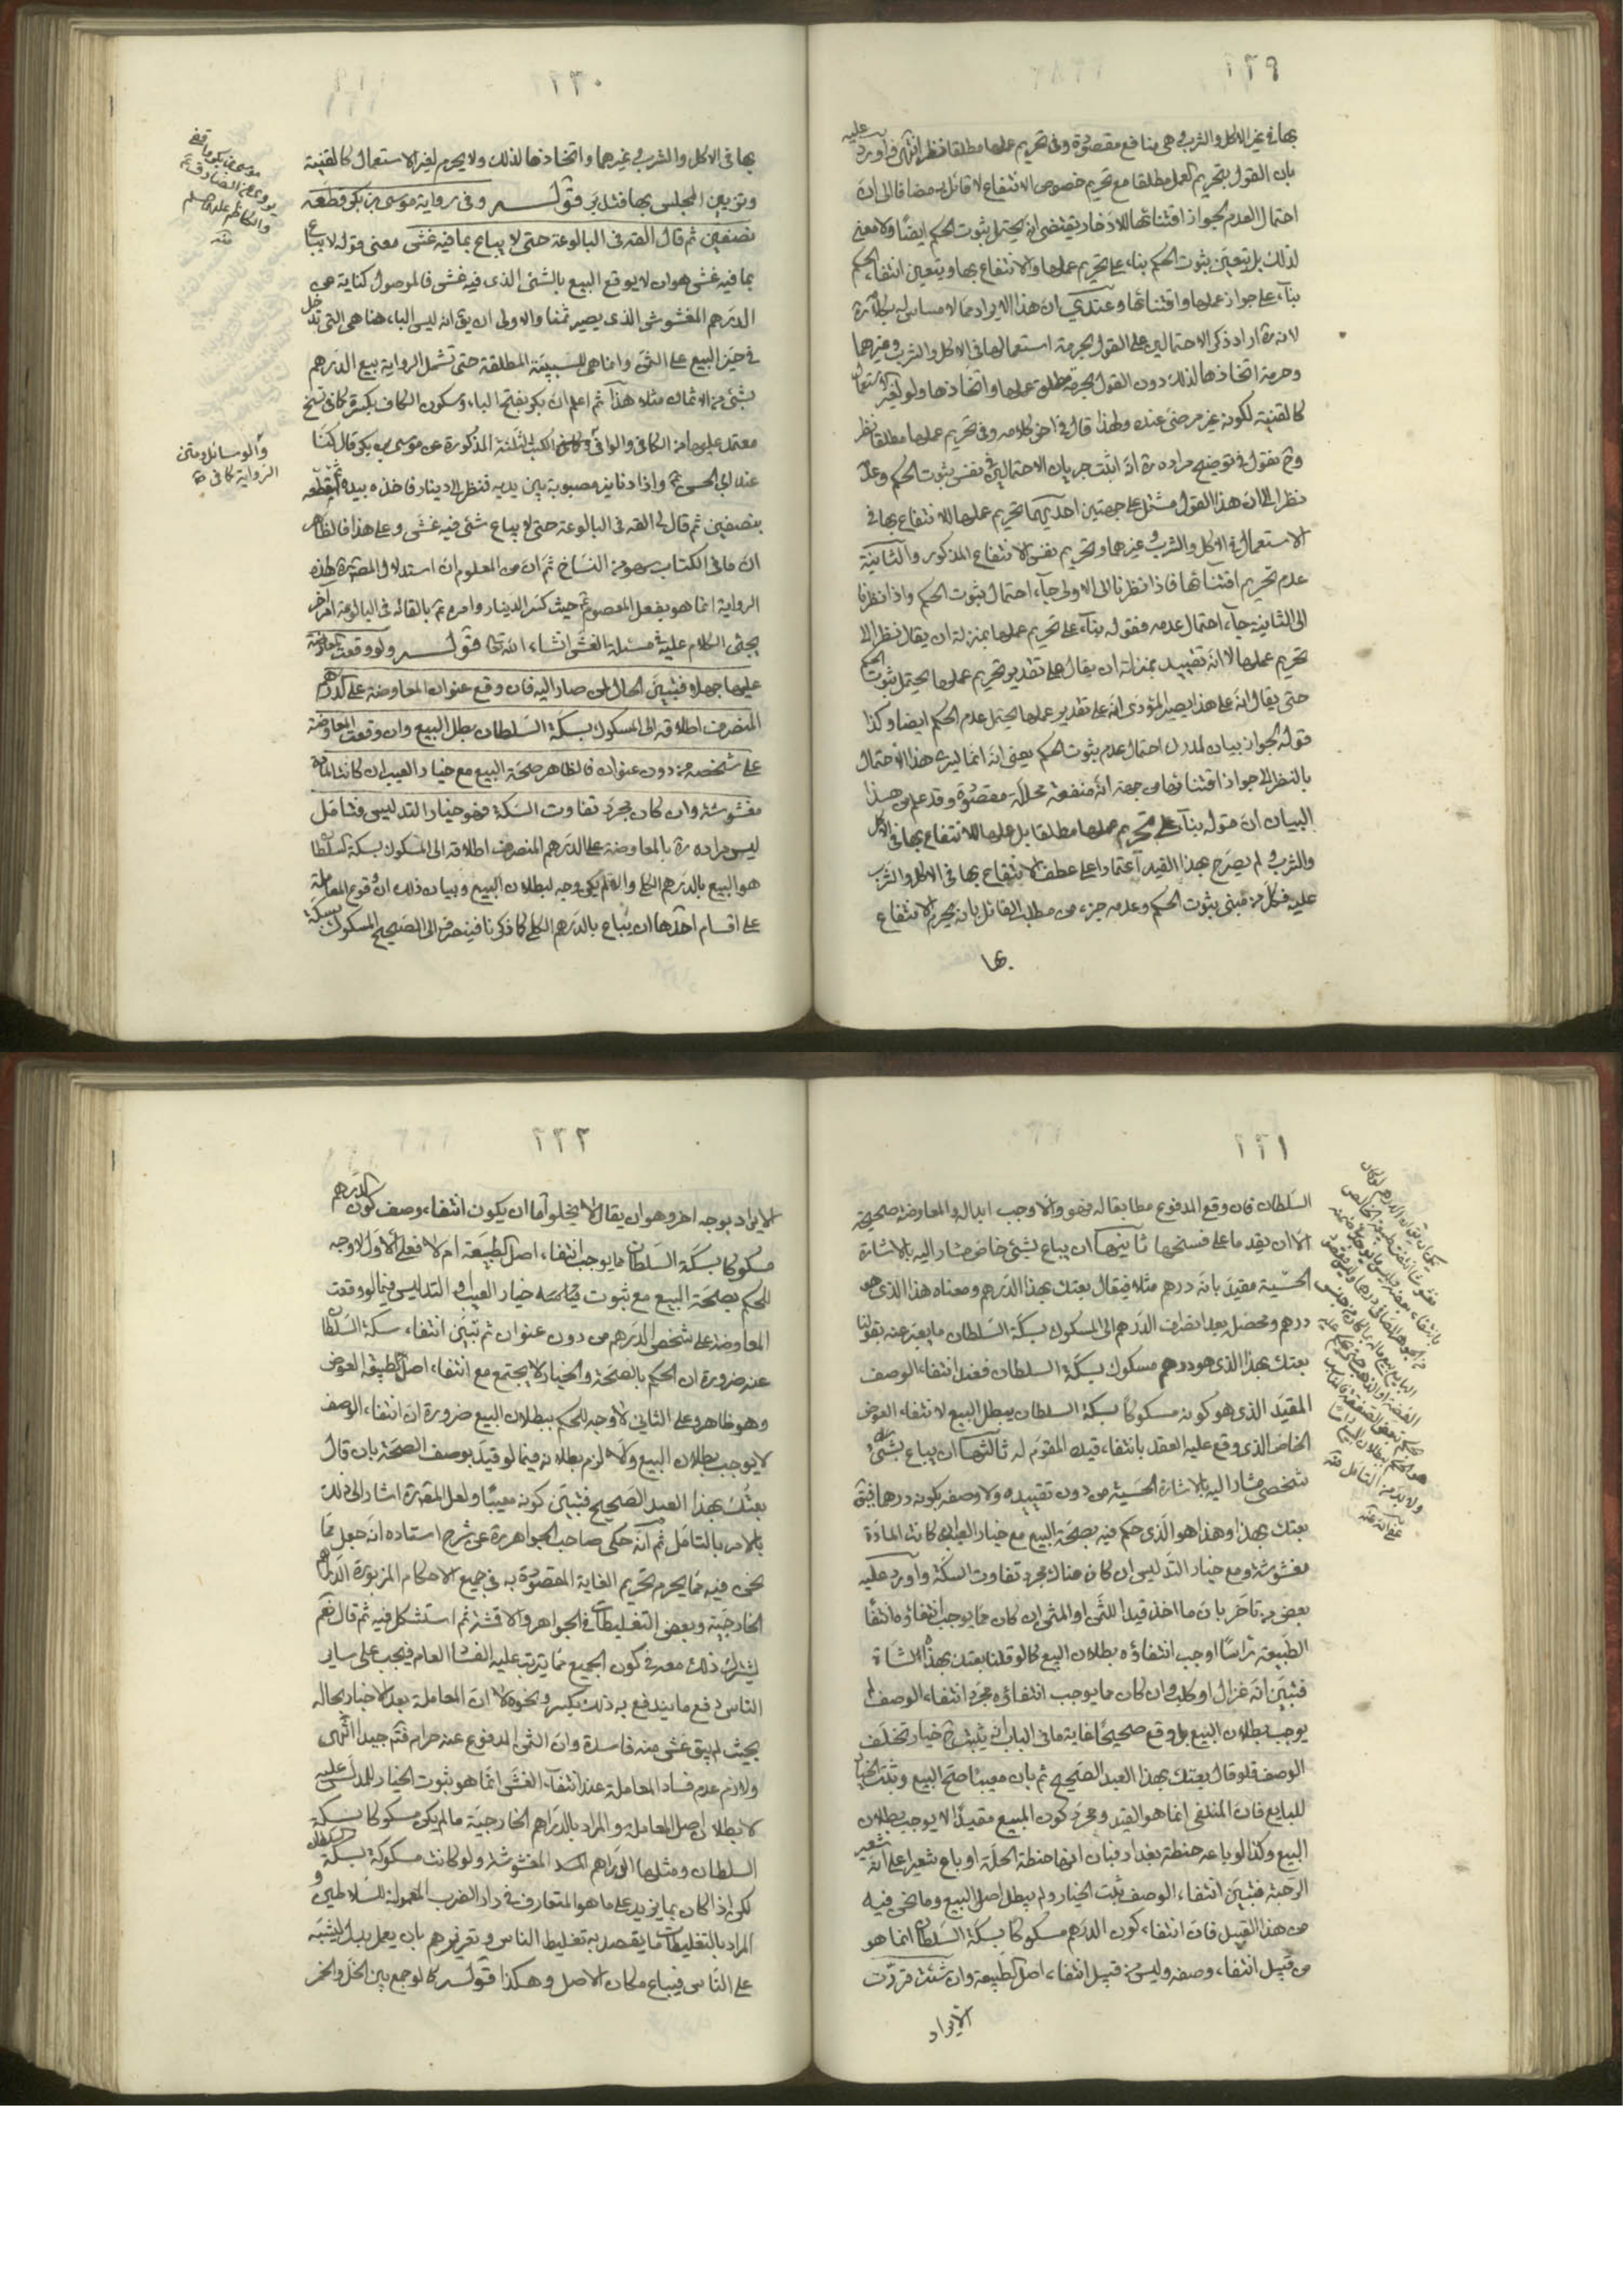 ٢٢٩
بها في غير الاكل والشرب وهي منافع مقصودة وفي تحريم عملها مطلقا نظر انتهى فاورد عليه
بان القول بتحريم العمل مطلقا مع تحريم خصوص الانتفاع لا قائل به مضافا الى ان
احتمال العدم لجواز اقتنائها للادخار يقتضي انه يحتمل ثبوت الحكم ايضا ولا معنى
لذلك بل يتعين ثبوت الحكم بناء على تحريم عملها والانتفاع بها ويتعين انتفاء الحكم
بناء على جواز عملها واقتنائها وعندي ان هذا الايراد مما لا مساس له بكلامه ره
لانه ره اراد ذكر الاحتمالين على القول بحرمة استعمالها في الاكل والشرب وغيرهما
وحرمة اتخاذها لذلك دون القول بحرمة مطلق عملها واتخاذها ولو لغير الاستعمال
كالقنية لكونه غير مرضي عنده ولهذا قال في اخر كلامه وفي تحريم عملها مطلقا نظر
وح نقول في توضيح مراده ره انه اثبت جريان الاحتمالين في نفس ثبوت الحكم وعدمه
نظرا الى ان هذا القول مشتمل على جهتين احديهما تحريم عملها للانتفاع بها في
الاستعمال في الاكل والشرب وغيرهما وتحريم نفس الانتفاع المذكور والثانية
عدم تحريم اقتنائها فاذا نظرنا الى الاولى جاء احتمال ثبوت الحكم واذا نظرنا
الى الثانية جاء احتمال عدمه فقوله بناء على تحريم عملها بمنزلة ان يقال نظرا الى
تحريم عملها لا انه تقييد بمنزلة ان يقال على تقدير تحريم عملها يحتمل ثبوت الحكم
حتى يقال انه على هذا يصير المؤدى انه على تقدير عملها يحتمل عدم الحكم ايضا وكذا
قوله لجواز بيان لمدرك احتمال عدم ثبوت الحكم يعني انه انما يسري هذا الاحتمال
بالنظر الى جواز اقتنائها من جهة انه منفعة محللة مقصودة وقد علم من هذا
البيان ان قوله بناء على تحريم عملها ليس مطلقا بل عملها للانتفاع بها في الاكل
والشرب ولم يصرح بهذا القيد اعتمادا على عطف الانتفاع بها في الاكل والشرب
عليه فكل من مبنى ثبوت الحكم وعدمه جزء من مطلب القائل بانه يحرم الانتفاع
بها
٢٣٠
بها في الاكل والشرب وغيرهما واتخاذها لذلك ولا يحرم لغير الاستعمال كالقنية
وتزيين المجلس بها فتدبر قوله وفي رواية موسى بن بكر قطعه
نصفين ثم قال القه في البالوعة حتى لا يباع بما فيه غش معنى قوله لا يباع
بما فيه غش هو ان لا يوقع البيع بالشئ الذي فيه غش فالموصول كناية عن
الدرهم المغشوش الذي يصير ثمنا والاولى ان يق انه ليس الباء هنا هي التي تدخل
في حيز البيع على الثمن وانما هي للسببية المطلقة حتى تشمل الرواية بيع الدرهم
بشئ من الاثمان مثلا هذا ثم اعلم ان بكر بفتح الباء وسكون الكاف بكسرة كما في نسخ
معتمد عليها من الكافي والوافي وكل من الكتب الثلثة المذكورة عن موسى بن بكر قال كنا
عند ابي الحسن ع واذا دنانير مصبوبة بين يديه فنظر الى دينار فاخذه بيده ثم قطعه
بنصفين ثم قال لي القه في البالوعة حتى لا يباع شئ فيه غش وعلى هذا فالظاهر
ان ما في الكتاب سهو من النساخ ثم ان من المعلوم ان استدلال المصنف ره بهذه
الرواية انما هو بفعل المعصوم ع حيث كسر الدينار وامره ع بالقائه في البالوعة امر اخر
يجئ الكلام عليه في مسئلة الغش انشاء الله تعالى قوله ولو وقعت المعاوضة
عليها جهلا فتبين الحال لمن صار اليه فان وقع عنوان المعاوضة على الدرهم
المنصرف اطلاقه الى المسكوك بسكة السلطان بطل البيع وان وقعت المعاوضة
على شخصه من دون عنوان فالظاهر صحة البيع مع خيار العيب ان كانت المادة
مغشوشة وان كان مجرد تفاوت السكة فهو خيار التدليس فتامل
ليس مراده ره بالمعاوضة على الدرهم المنصرف اطلاقه الى المسكوك بسكة السلطان
هو البيع بالدرهم الكلي والا لم يكن وجه لبطلان البيع وبيان ذلك ان وقوع المعاملة
على اقسام احدها ان يباع بالدرهم الكلي كما ذكرنا فينصرف الى الصحيح المسكوك بسكة
موسى بن بكر واقفي
يروى عن الصادق ع
والكاظم عليهما السلم
منه
والوسائل ومتن
الرواية كما في
٢٣١
السلطان فان وقع المدفوع مطابقا له فهو والا وجب ابداله والمعاوضة صحيحة
الا ان يقدما على فسخها ثانيها ان يباع بشئ خاص مشار اليه بالاشارة
الحسية مقيد بانه درهم مثلا فيقال بعتك بهذا الدرهم ومعناه هذا الذي هو
درهم ومحصل بعد انصراف الدرهم الى المسكوك بسكة السلطان ما يعبر عنه بقولنا
بعتك بهذا الذي هو درهم مسكوك بسكة السلطان فعند انتفاء الوصف
المقيد الذي هو كونه مسكوكا بسكة السلطان يبطل البيع لانتفاء العوض
الخاص الذي وقع عليه العقد بانتفاء قيده المقوم له ثالثها ان يباع بشئ
شخصي مشار اليه بالاشارة الحسية من دون تقييده ولا وصفه بكونه درهما فيق
بعتك بهذا وهذا هو الذي حكم فيه بصحة البيع مع خيار العيب ان كانت المادة
مغشوشة ومع خيار التدليس ان كان هناك مجرد تفاوت السكة واورد عليه
بعض من تاخر بان ما اخذ قيدا للثمن او المثمن ان كان مما يوجب انتفاؤه انتفاء
الطبيعة راسا اوجب انتفاؤه بطلان البيع كما لو قلنا بعتك بهذه الشاة
فتبين انه غزال او كلب وان كان مما يوجب انتفاؤه مجرد انتفاء الوصف لم
يوجب بطلان البيع بل وقع صحيحا غاية ما في الباب انه يثبت ح خيار تخلف
الوصف فلو قال بعتك بهذا العبد الصحيح ثم بان معيبا صح البيع وثبت الخيار
للبايع فان المنتفي انما هو القيد ومجرد كون المبيع مقيدا لا يوجب بطلان
البيع وكذا لو باعه حنطة بغداد فبان انها حنطة الحلة او باع شعيرا على انه شعير
الرحبة فتبين انتفاء الوصف ثبت الخيار ولم يبطل اصل البيع وما نحن فيه
من هذا القبيل فان انتفاء كون الدرهم مسكوكا بسكة السلطان انما هو
من قبيل انتفاء وصفه وليس من قبيل انتفاء اصل الطبيعة وان شئت قررت
الايراد
٢٣٢
الايراد بوجه اخر وهو ان يقال لا يخلو اما ان يكون انتفاء وصف كون الدرهم
مسكوكا بسكة السلطان مما يوجب انتفاء اصل الطبيعة ام لا فعلى الاول لا وجه
للحكم بصحة البيع مع ثبوت خيار العيب او التدليس فيما لو وقعت
المعاوضة على شخص الدرهم من دون عنوان ثم تبين انتفاء سكة السلطان
عنه ضرورة ان الحكم بالصحة والخيار لا يجتمع مع انتفاء اصل طبيعة العوض
وهو ظاهر وعلى الثاني لا وجه للحكم ببطلان البيع ضرورة ان انتفاء الوصف
لا يوجب بطلان البيع والا لزم بطلانه فيما لو قيد بوصف الصحة بان قال
بعتك بهذا العبد الصحيح فتبين كونه معيبا ولعل المصنف ره اشار الى ذلك
بالامر بالتامل ثم انه حكى صاحب الجواهر ره عن شرح استاده انه جعل مما
نحن فيه مما يحرم لتحريم الغاية المقصودة به في جميع الاحكام المزبورة الدراهم
الخارجية وبعض التغليطات في الجواهر والاقمشة ثم استشكل فيه ثم قال نعم
يشترك ذلك معه في كون الجميع مما يترتب عليه الفساد العام فيجب على ساير
الناس دفع ما يندفع به ذلك بكسر ونحوه لا ان المعاملة بعد الاخبار بحاله
بحيث لم يبق غش منه فاسدة وان الثمن المدفوع عنه حرام فتم جيدا انتهى
ولازم عدم فساد المعاملة عند انتفاء الغش انما هو ثبوت الخيار للمدلس عليه
لا بطلان اصل المعاملة والمراد بالدراهم الخارجية ما لم يكن مسكوكا بسكة
السلطان ومثلها الدراهم المغشوشة ولو كانت مسكوكة بسكة السلطان
لكن اذا كان بما يزيد على ما هو المتعارف في دار الضرب المعمولة للسلاطين و
المراد بالتغليطات ما يقصد به تغليط الناس وتغريرهم بان يعمل بدل يشتبه
على الناس فيباع مكان الاصل وهكذا قوله كما لو جمع بين الخل والخمر